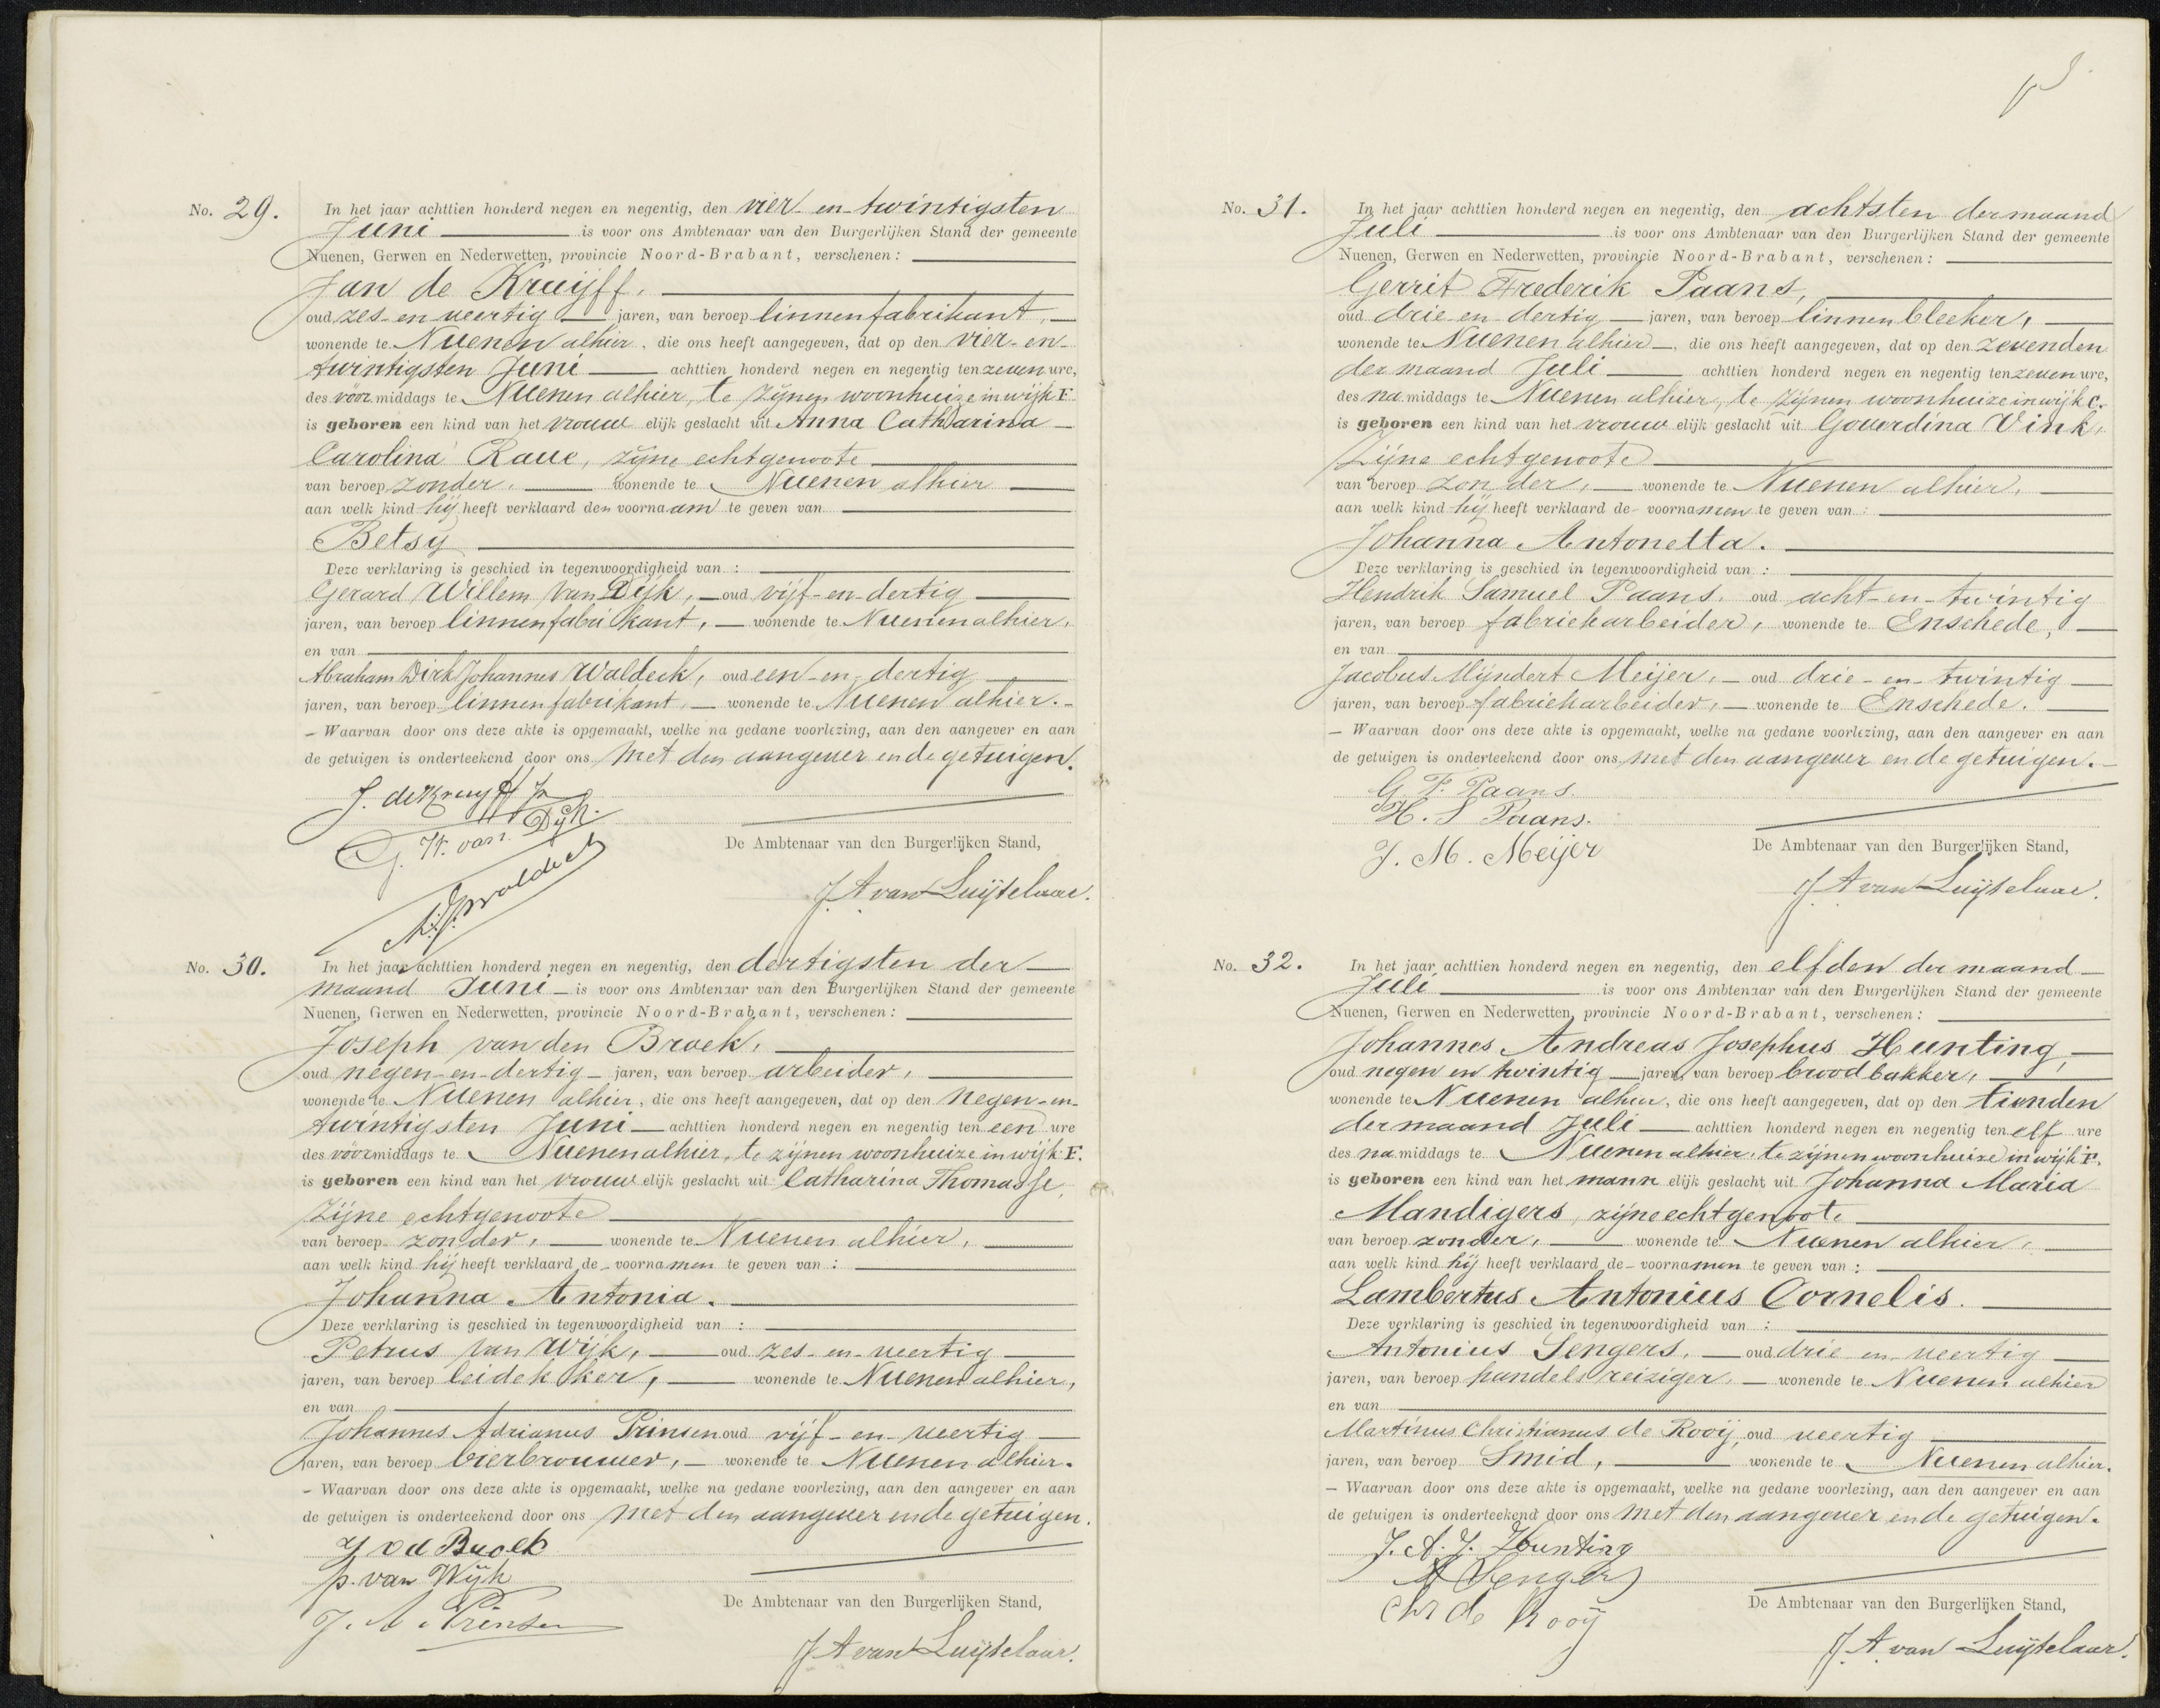 No. 29.
In het jaar achttien honderd negen en negentig, den vier-en-twintigsten
Juni is voor ons Ambtenaar van den Burgerlijken Stand der gemeente
Nuenen, Gerwen en Nederwetten, provincie Noord-Brabant, verschenen:
Jan de Kruijff,
oud zes-en-veertig jaren, van beroep linnenfabrikant,
wonende te Nuenen alhier, die ons heeft aangegeven, dat op den vier-en-
twintigsten Juni achttien honderd negen en negentig ten zeven ure,
des vóór middags te Nuenen alhier, te zijnen woonhuize in wijk F.
is geboren een kind van het vrouw elijk geslacht uit Anna Catharina
Carolina Raue, zijne echtgenoote
van beroep zonder, wonende te Nuenen alhier
aan welk kind hij heeft verklaard den voornaam te geven van
Betsy
Deze verklaring is geschied in tegenwoordigheid van :
Gerard Willem van Dijk, oud vijf-en-dertig
jaren, van beroep linnenfabrikant, wonende te Nuenen alhier,
en van
Abraham Dirk Johannes Waldeck, oud een-en-dertig
jaren, van beroep linnenfabrikant, wonende te Nuenen alhier.
– Waarvan door ons deze akte is opgemaakt, welke na gedane voorlezing, aan den aangever en aan
de getuigen is onderteekend door ons met den aangever en de getuigen.
J. de Kruyff Jr
G. W. van Dijk.
De Ambtenaar van den Burgerlijken Stand,
Waldeck
J. A van Luijtelaar.
No. 30.
In het jaar achttien honderd negen en negentig, den dertigsten der
maand Juni is voor ons Ambtenaar van den Burgerlijken Stand der gemeente
Nuenen, Gerwen en Nederwetten, provincie Noord-Brabant, verschenen:
Joseph van den Broek,
oud negen-en-dertig jaren, van beroep arbeider,
wonende te Nuenen alhier, die ons heeft aangegeven, dat op den negen-en-
twintigsten Juni achttien honderd negen en negentig ten een ure
des vóór middags te Nuenen alhier, te zijnen woonhuize in wijk F.
is geboren een kind van het vrouw elijk geslacht uit Catharina Thomasse,
zijne echtgenoote
van beroep zonder, wonende te Nuenen alhier,
aan welk kind hij heeft verklaard de voornamen te geven van :
Johanna Antonia.
Deze verklaring is geschied in tegenwoordigheid van :
Petrus van Wijk, oud zes-en-veertig
jaren, van beroep leidekker, wonende te Nuenen alhier,
en van
Johannes Adrianus Prinsen oud vijf-en-veertig
jaren, van beroep bierbrouwer, wonende te Nuenen alhier.
– Waarvan door ons deze akte is opgemaakt, welke na gedane voorlezing, aan den aangever en aan
de getuigen is onderteekend door ons met den aangever en de getuigen.
J v d Broek
p. van Wijk
J. A. Prinsen
De Ambtenaar van den Burgerlijken Stand,
J. A van Luijtelaar.
No. 31.
In het jaar achttien honderd negen en negentig, den achtsten der maand
Juli is voor ons Ambtenaar van den Burgerlijken Stand der gemeente
Nuenen, Gerwen en Nederwetten, provincie Noord-Brabant, verschenen:
Gerrit Frederik Paans,
oud drie-en-dertig jaren, van beroep linnenbleeker,
wonende te Nuenen alhier, die ons heeft aangegeven, dat op den zevenden
der maand Juli achttien honderd negen en negentig ten zeven ure,
des na middags te Nuenen alhier, te zijnen woonhuize in wijk C.
is geboren een kind van het vrouw elijk geslacht uit Gouerdina Vink,
zijne echtgenoote
van beroep zonder, wonende te Nuenen alhier,
aan welk kind hij heeft verklaard de voornamen te geven van :
Johanna Antonetta.
Deze verklaring is geschied in tegenwoordigheid van :
Hendrik Samuel Paans, oud acht-en-twintig
jaren, van beroep fabriekarbeider, wonende te Enschede,
en van
Jacobus Mijndert Meijer, oud drie-en-twintig
jaren, van beroep fabriekarbeider, wonende te Enschede.
– Waarvan door ons deze akte is opgemaakt, welke na gedane voorlezing, aan den aangever en aan
de getuigen is onderteekend door ons met den aangever en de getuigen.
G. F. Paans.
H. S Paans.
J. M. Meijer
De Ambtenaar van den Burgerlijken Stand,
J. A van Luijtelaar.
No. 32.
In het jaar achttien honderd negen en negentig, den elfden der maand
Juli is voor ons Ambtenaar van den Burgerlijken Stand der gemeente
Nuenen, Gerwen en Nederwetten, provincie Noord-Brabant, verschenen:
Johannes Andreas Josephus Hunting,
oud negen en twintig jaren, van beroep broodbakker,
wonende te Nuenen alhier, die ons heeft aangegeven, dat op den tienden
der maand Juli achttien honderd negen en negentig ten elf ure
des na middags te Nuenen alhier, te zijnen woonhuize in wijk F.
is geboren een kind van het mann elijk geslacht uit Johanna Maria
Mandigers, zijne echtgenoote
van beroep zonder, wonende te Nuenen alhier,
aan welk kind hij heeft verklaard de voornamen te geven van :
Lambertus Antonius Cornelis.
Deze verklaring is geschied in tegenwoordigheid van :
Antonius Sengers, oud drie-en-veertig
jaren, van beroep handelsreiziger, wonende te Nuenen alhier
en van
Martinus Christianus de Rooij, oud veertig
jaren, van beroep Smid, wonende te Nuenen alhier.
– Waarvan door ons deze akte is opgemaakt, welke na gedane voorlezing, aan den aangever en aan
de getuigen is onderteekend door ons met den aangever en de getuigen.
J. A. J. Hunting
A Sengers
Chr de Rooij
De Ambtenaar van den Burgerlijken Stand,
J. A. van Luijtelaar.